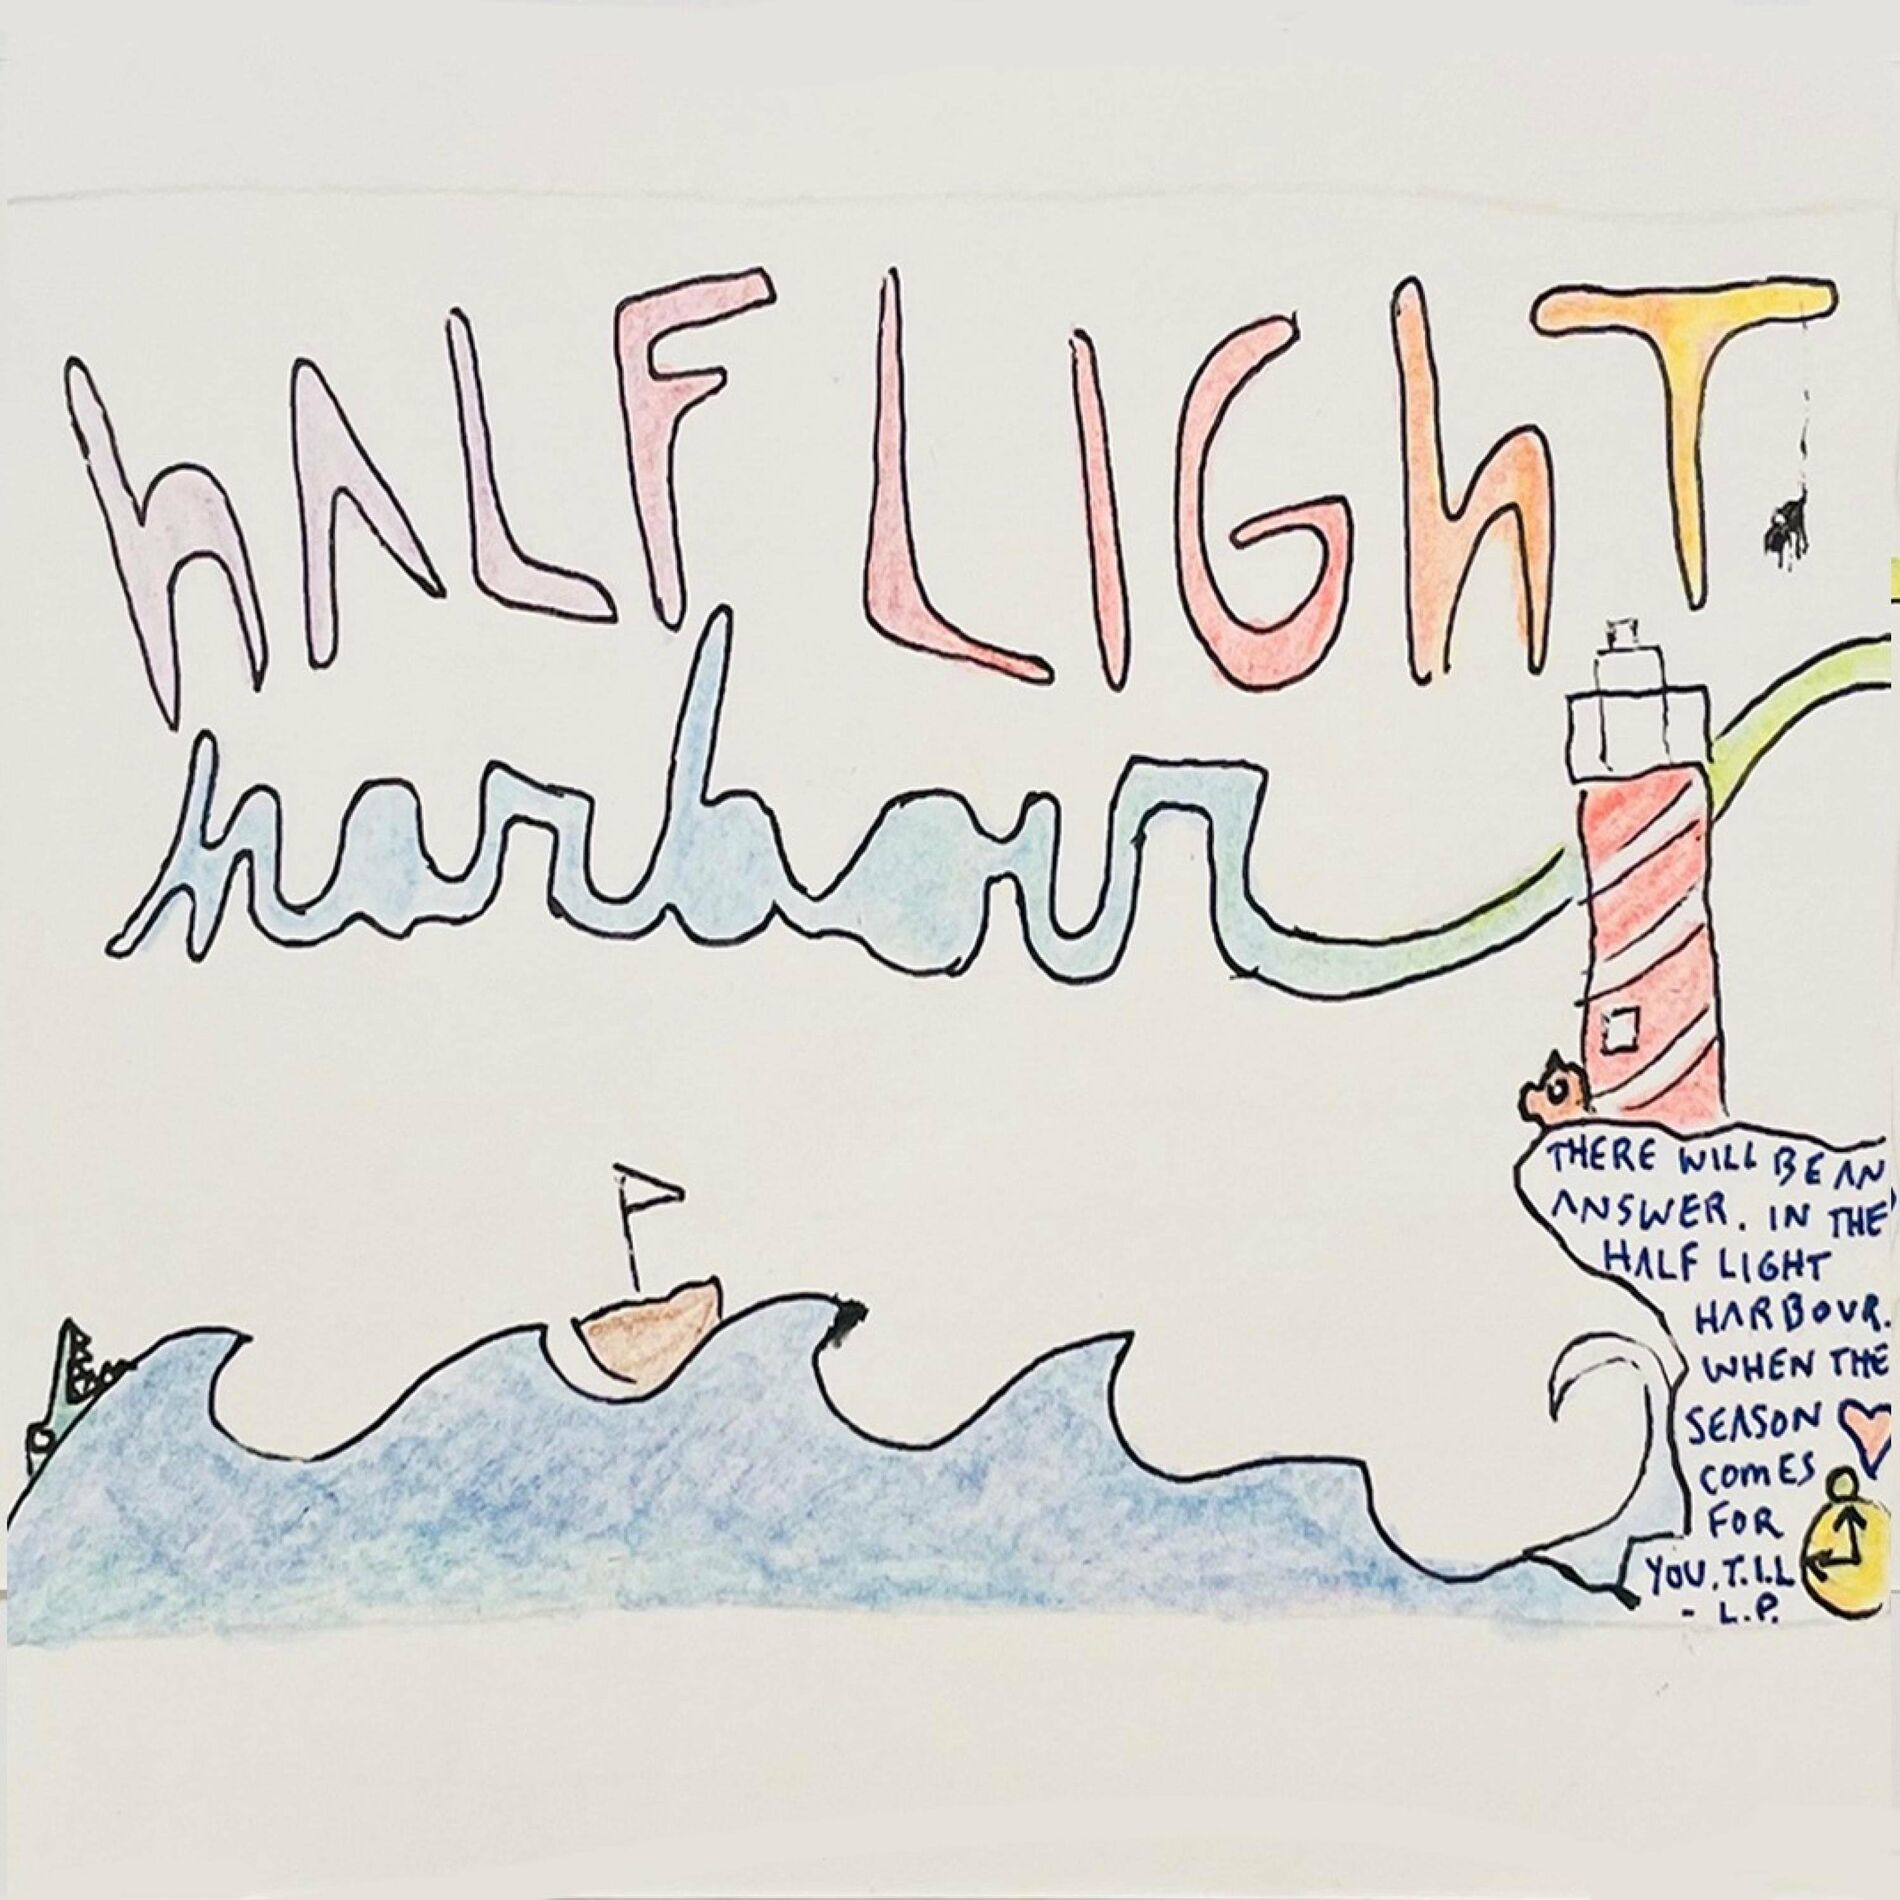 hALF LIGhT
harbour
THERE WILL BE AN
ANSWER. IN THE
HALF LIGHT
HARBOUR.
WHEN THE
SEASON
COMES
FOR
YOU. T.I.L
- L.P.